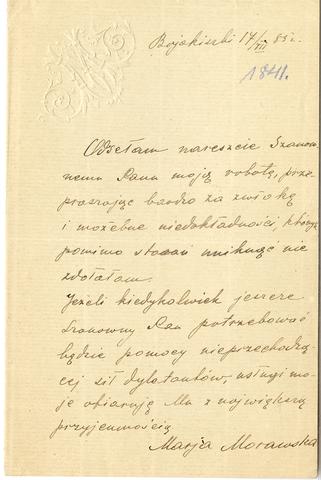 Bojakiszki 14/VII 85 r.
1841.
Odsełam nareszcie Szanow
nemu Panu moją robotę, prze
praszając bardzo za zwłokę
i możebne niedokładności, których
pomimo starań uniknąć nie
zdołałam.
Jeżeli kiedykolwiek jeszcze
Szanowny Pan potrzebować
będzie pomocy nieprzechodzą
cej sił dyletantów, usługi mo
je ofiaruję Mu z największą
przyjemnością
Marja Morawska